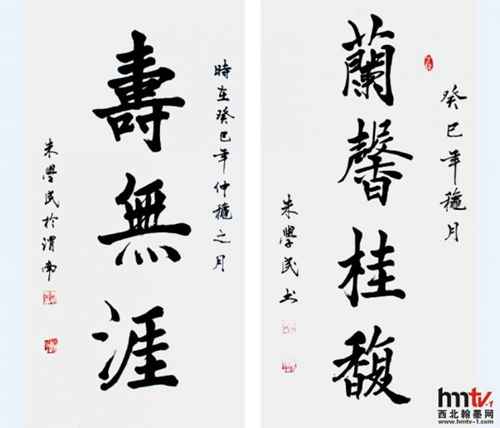 癸巳年穐月
蘭馨桂馥
朱學民书
時在癸巳年仲穐之月
壽無涯
朱學民於渭南
hmtv-1
西北翰墨网
www.hmtv-1.com